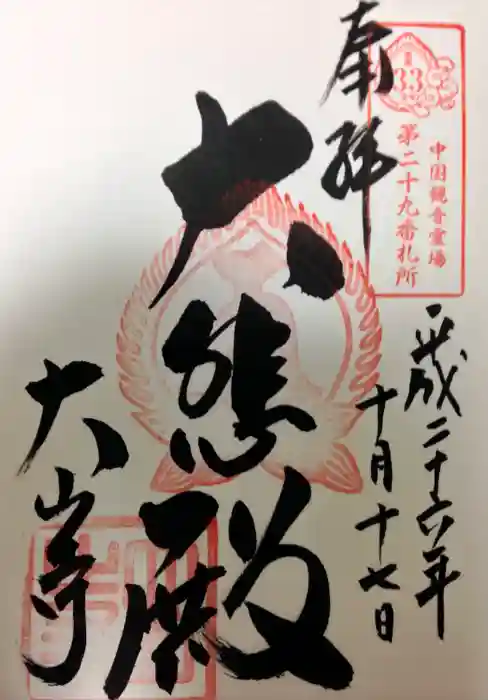 中国観音霊場
第二十九番札所
33
奉拝
平成二十六年
十月十七日
大悲殿
大山寺